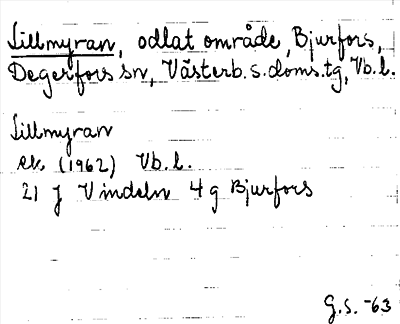 Lillmyran, odlat område, Bjurfors,
Degerfors sn, Västerb. s. doms. tg, Vb. l.
Lillmyran
ek (1962) Vb. l.
21 J Vindeln 4 g Bjurfors
G.S. -63